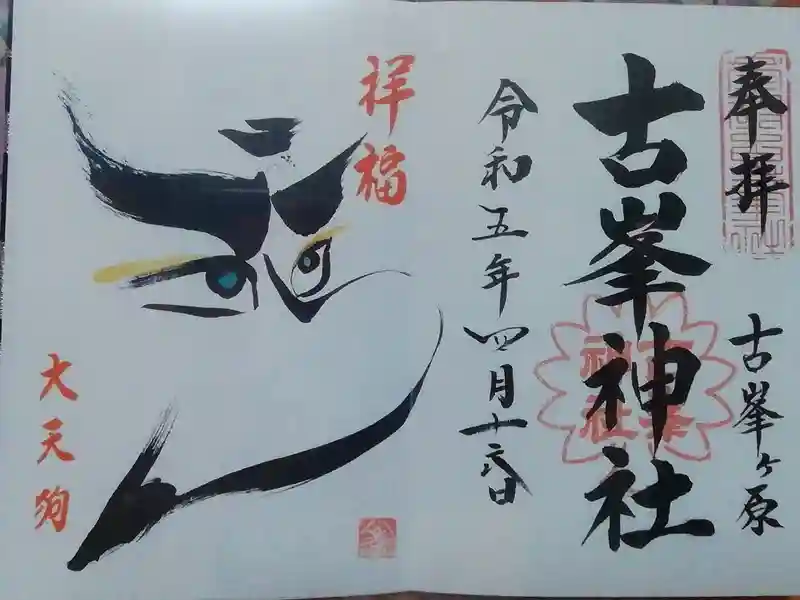 奉拝
古峯ヶ原
古峯神社
令和五年四月十六日
祥福
大天狗